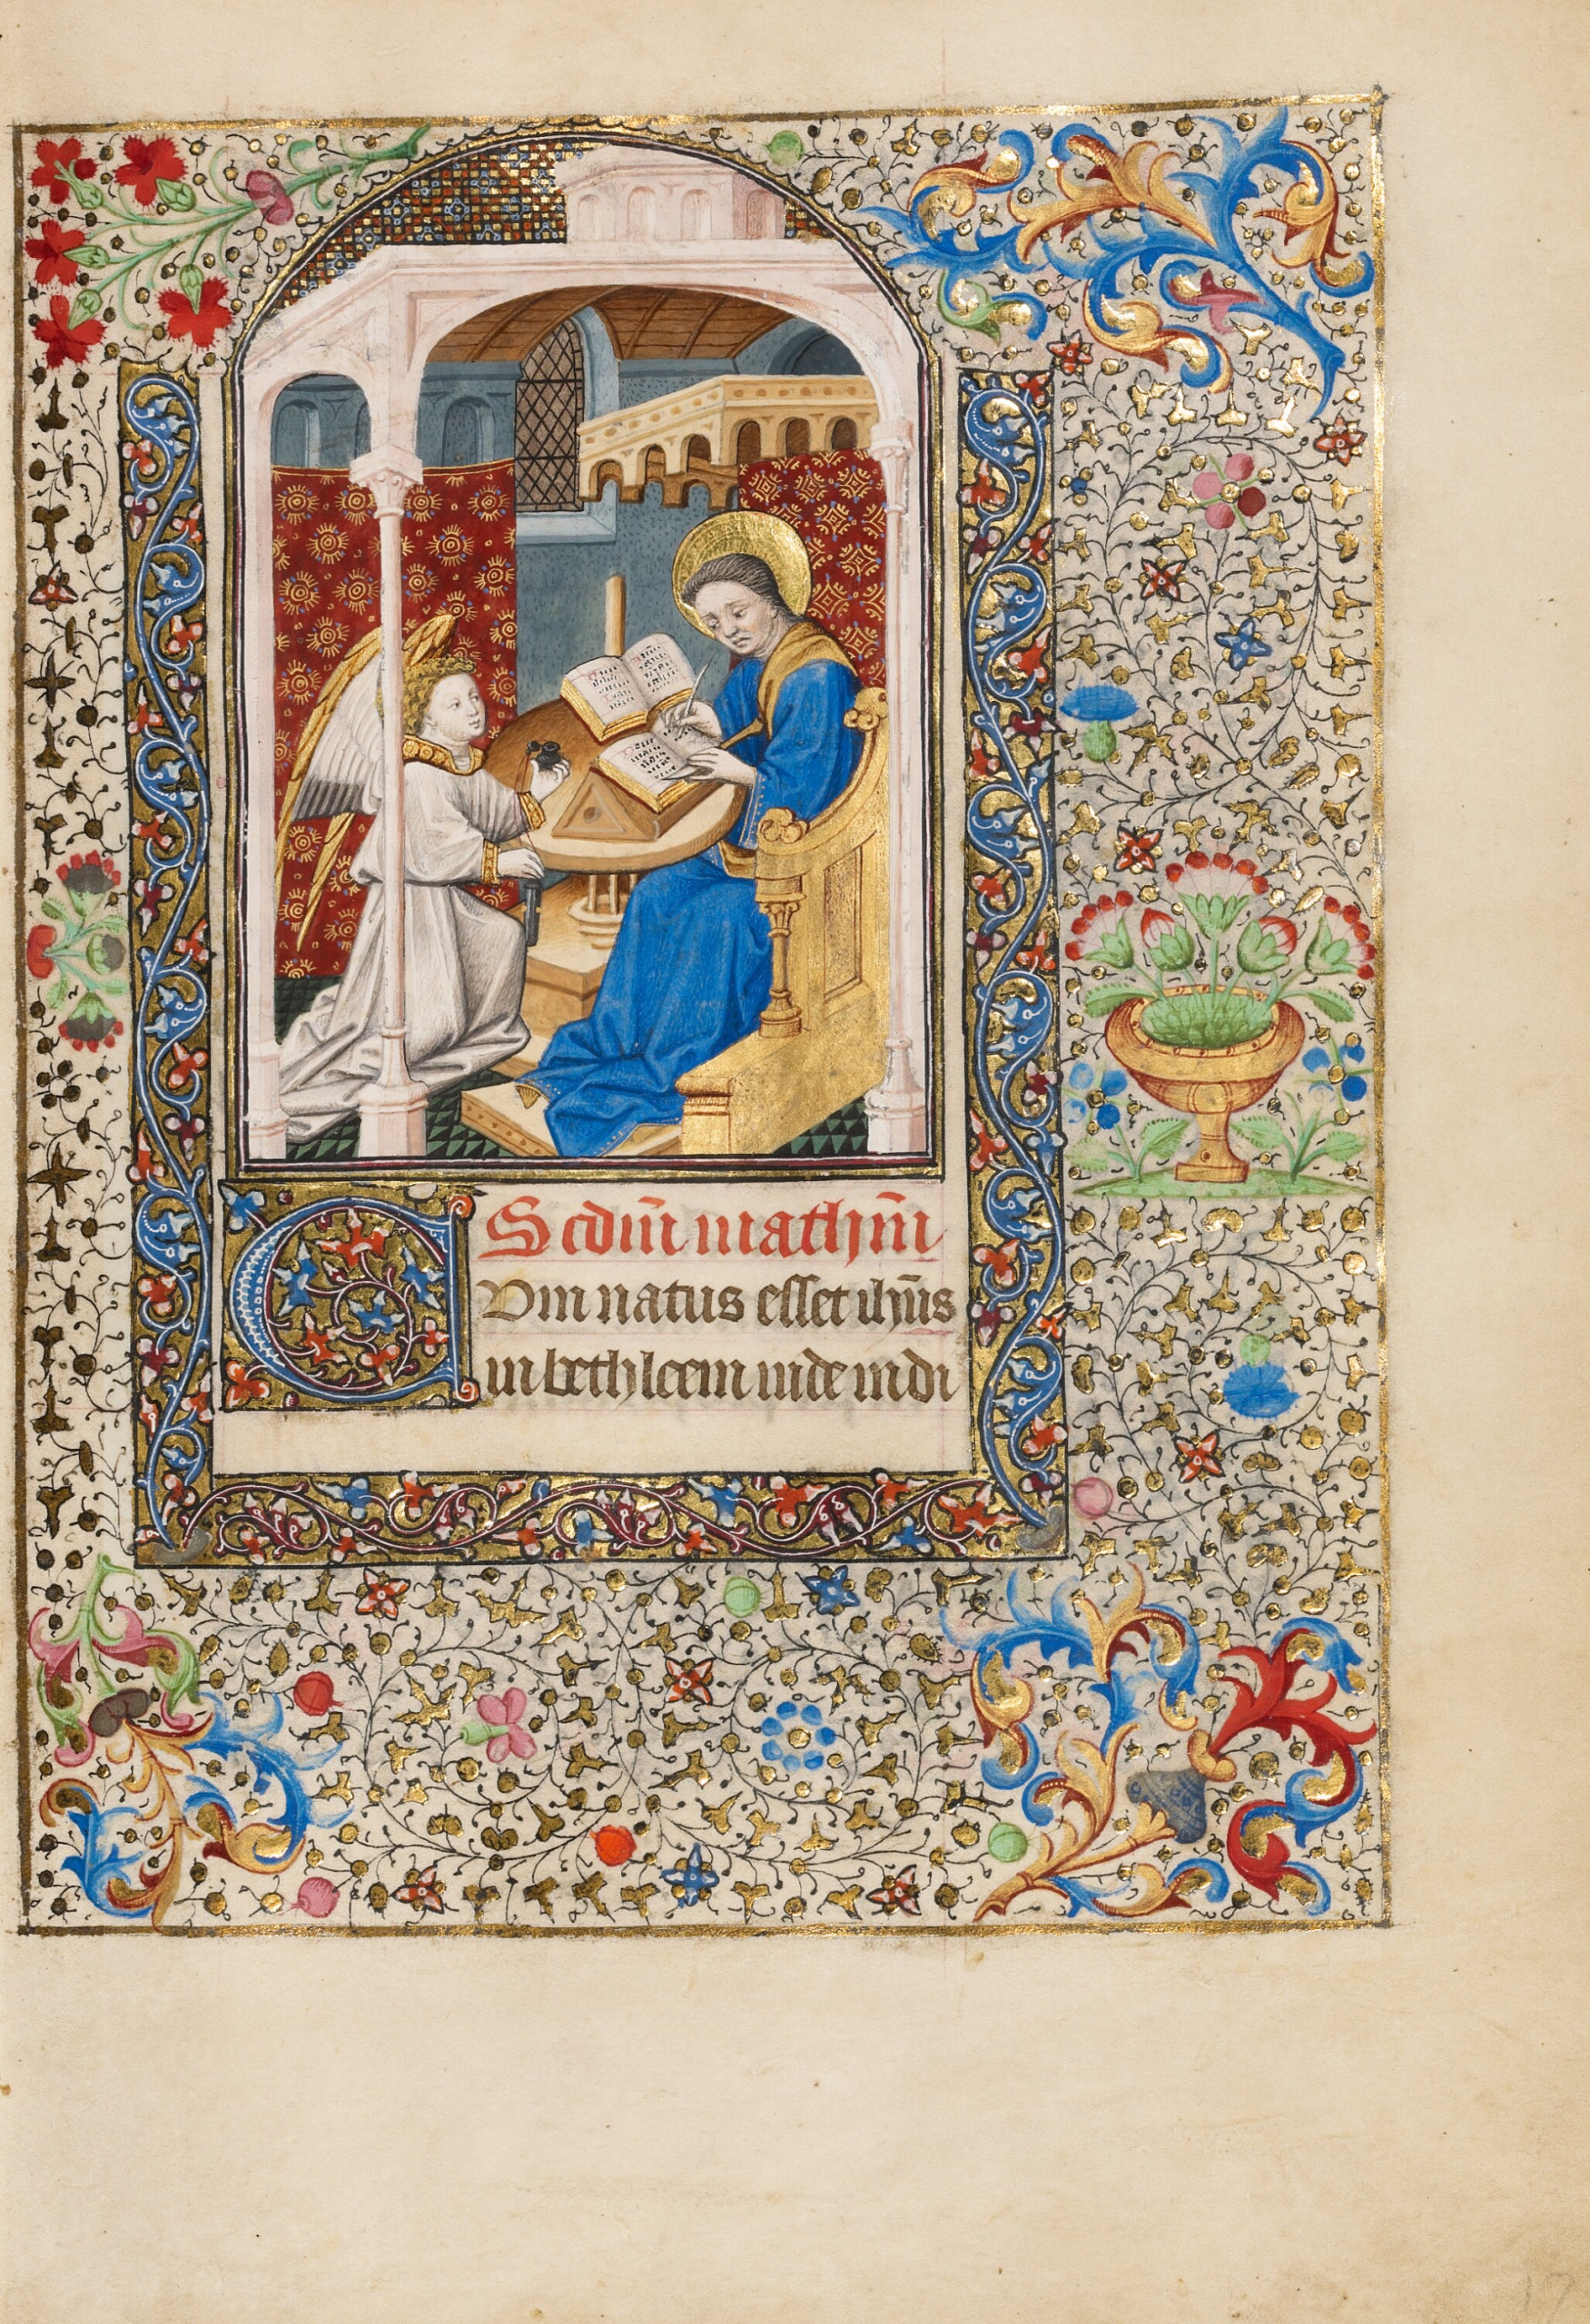 Scdm̄ mathm̄
Cum natus esset ihūs
in bethleem iude in di